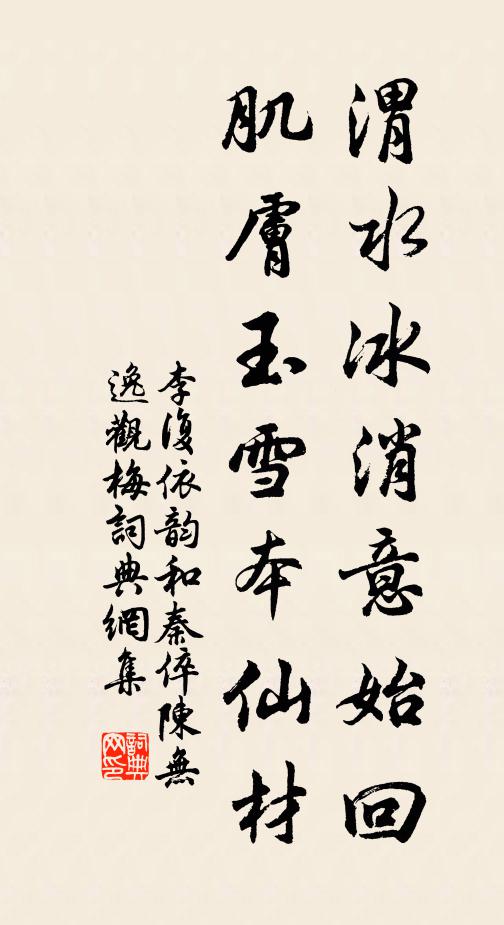 渭水冰消意始回
肌膚玉雪本仙材
李復依韵和秦倅陳無
逸觀梅詞典網集
詞典网印